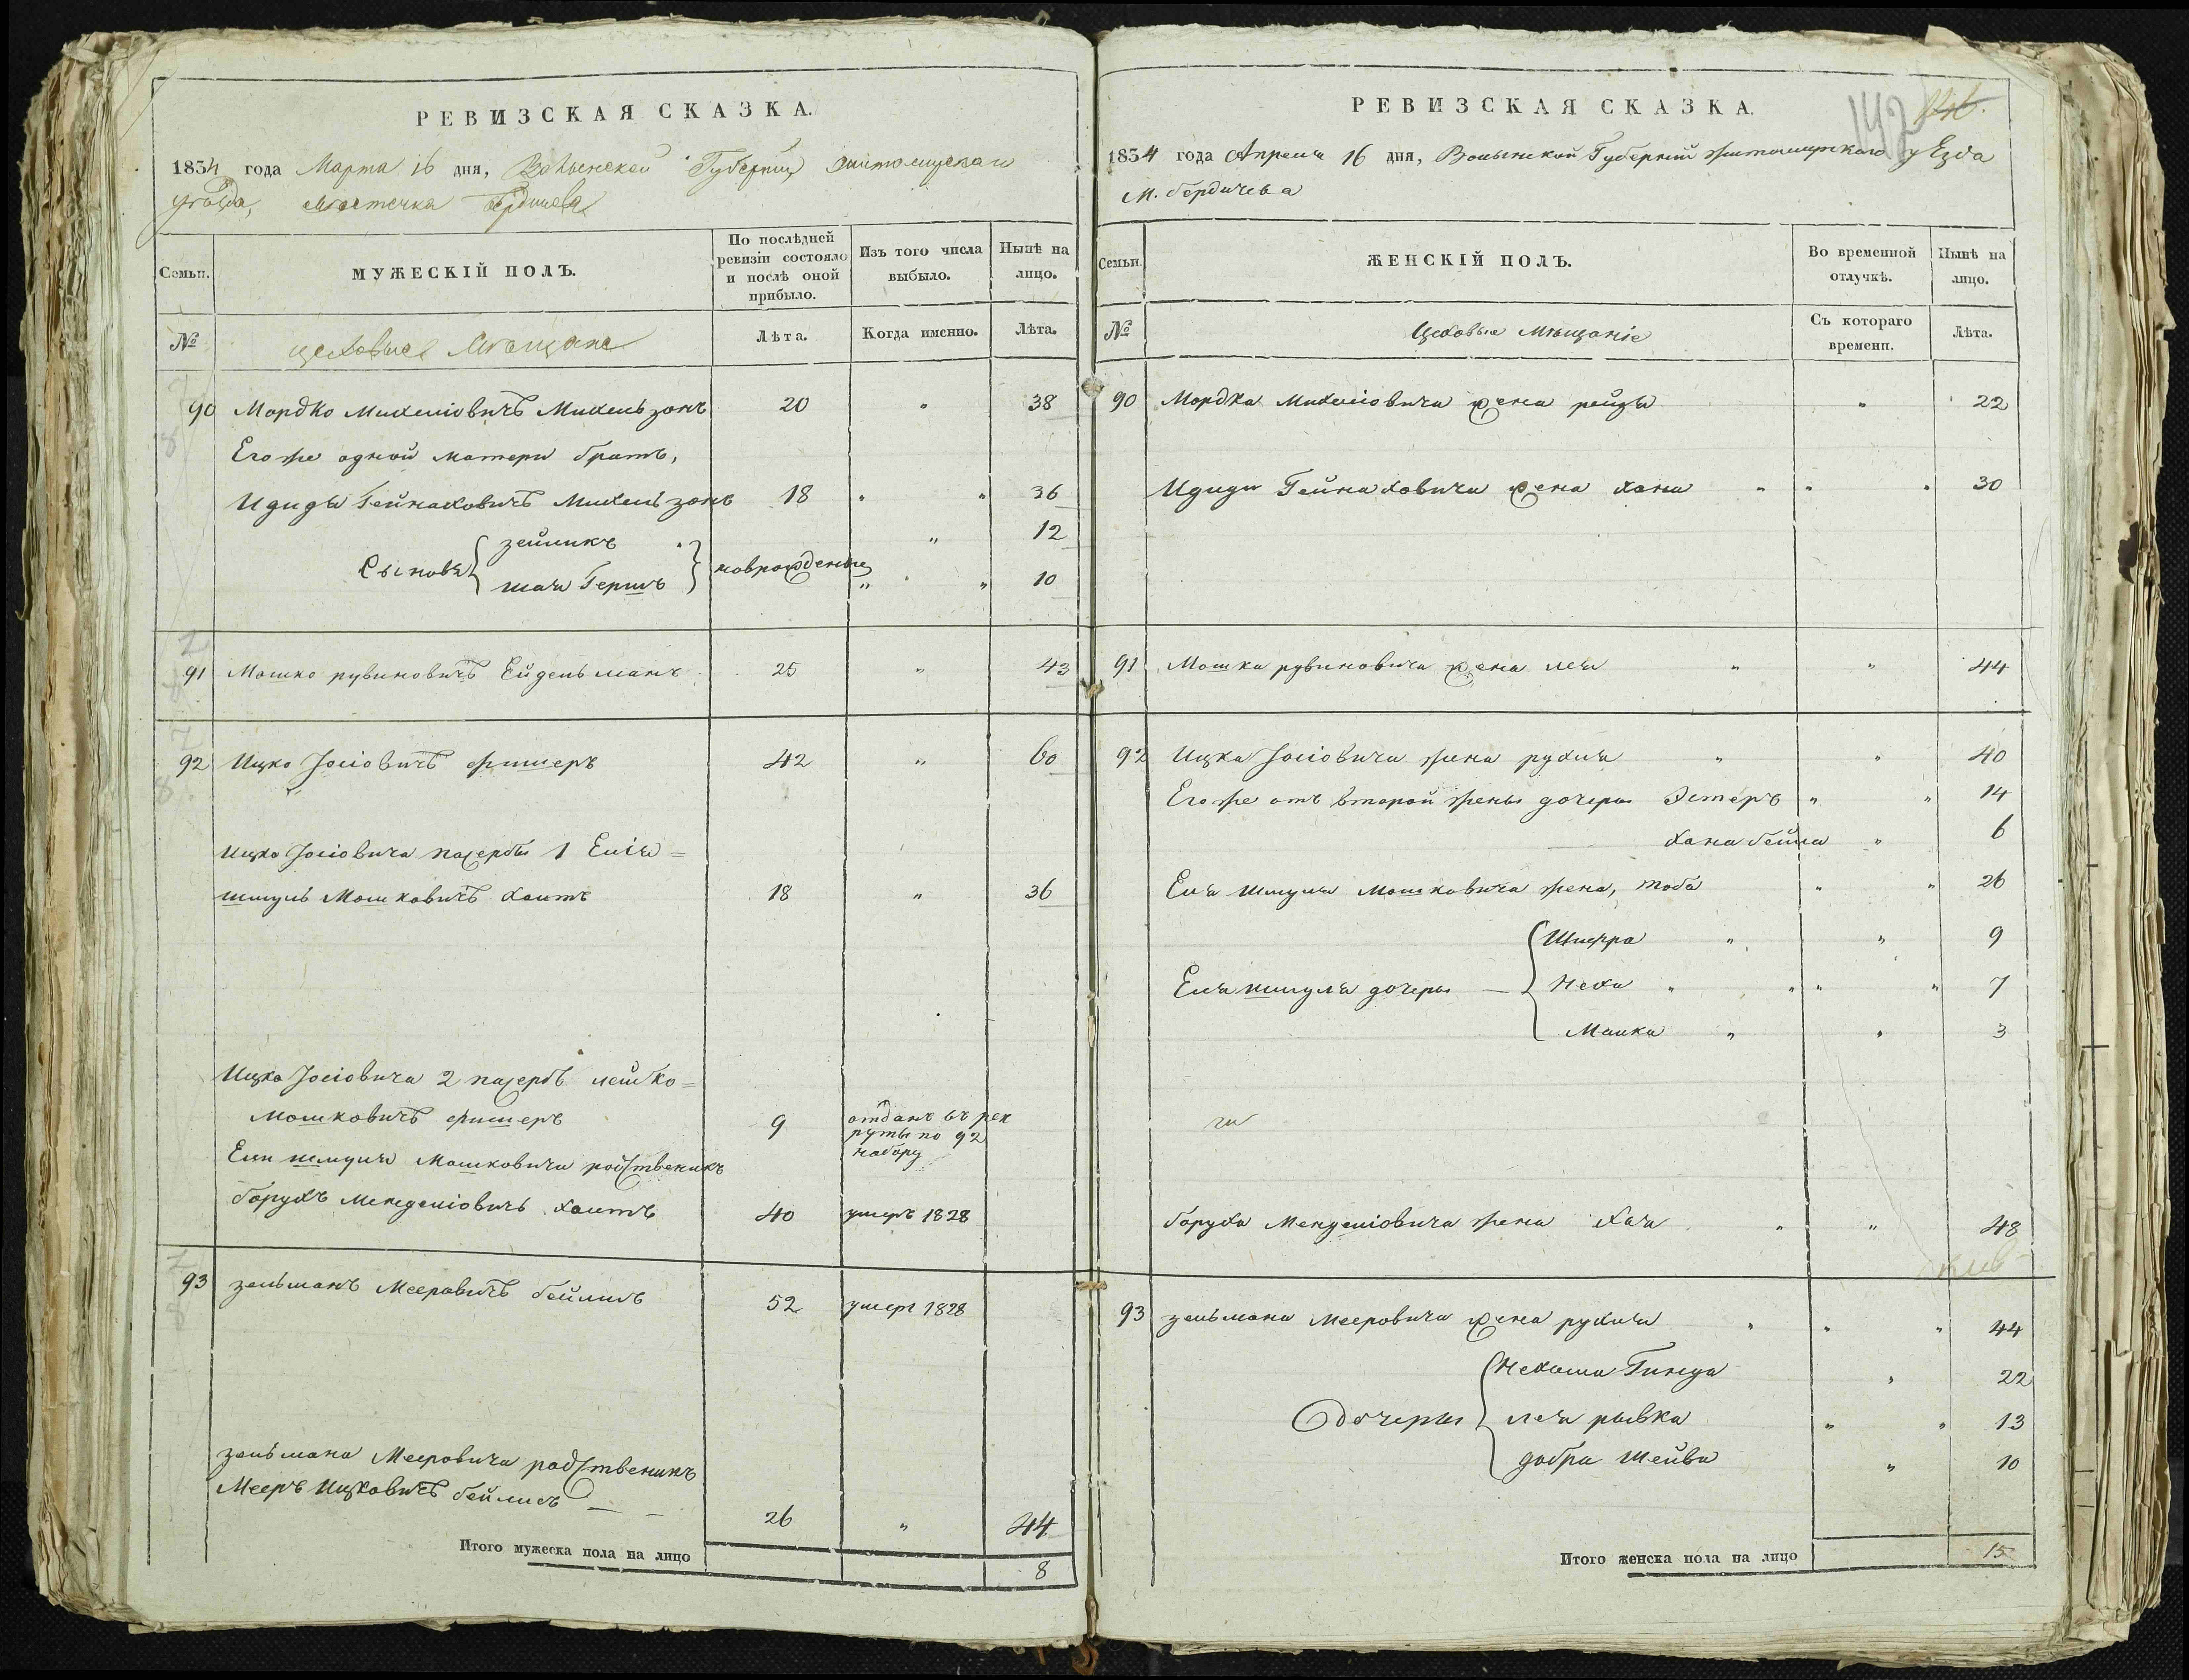 РЕВИЗСКАЯ СКАЗКА.
1834 года Марта 16 дня, Волынской Губерніи Житомирскаго
уѣзда, мѣстечка Бердичева
Семьи.
МУЖЕСКІЙ ПОЛЪ.
По послѣдней ревизіи состояло и послѣ оной прибыло.
Изъ того числа выбыло.
Нынѣ на лицо.
№
цеховые Мѣщане
Лѣта.
Когда именно.
Лѣта.
90 Мордко Михеліовичъ Михельзонъ 20 " 38
Егоже одной матери братъ,
Идидя Гейнаховичъ Михельзонъ 18 " " 36
зейликъ " 12
Сыновя новрожденые
шая Гершъ " " 10
91 Мошко рувиновичъ Ейдельманъ 25 " 43
92 Ицко Іосіовичъ фишеръ 42 " 60
Ицка Іосіовича пасербы 1 Еліа=
шмуль Мошковичъ хаитъ 18 " 36
Ицка Іосіовича 2 пасербъ лейбко=
Мошковичъ фишеръ 9 отданъ въ рек
руты по 92
набору
Ели шмуля Мошковича родственикъ
борухъ Менделіовичъ хаитъ 40 умеръ 1828
93 зельманъ Мееровичъ бейлисъ 52 умеръ 1828
зельмана Мееровича родственикъ
Мееръ Ицковичъ бейлисъ 26 " 44
Итого мужеска пола на лицо 8
142
РЕВИЗСКАЯ СКАЗКА.
1834 года Апреля 16 дня, Волынской Губерніи житомирскаго уЕзда
М. бердичева
Семьи.
ЖЕНСКІЙ ПОЛЪ.
Во временной отлучкѣ.
Нынѣ на лицо.
№
Цеховые Мѣщаніе
Съ котораго времени.
Лѣта.
90 Мордка Михеліовича жена рейзя " 22
Идиди Гейнаховича жена хана " " " 30
91 Мошка рувиновича жена лея " " 44
92 Ицка Іосіовича жена рухля " " 40
Егоже отъ второй жены дочеры Эстеръ " " 14
хана бейла " 6
Еля шмуля Мошковича жена, тоба " " 26
Шифра " " 9
Еля шмуля дочеры — Неха " " " " 7
Малка " " 3
боруха Менделіовича жена хая " " 48
93 зельмана Мееровича жена рухля " " " 44
Нехама Гинда " 22
дочеры лея рывка " " 13
добра шейва " 10
Итого женска пола на лицо 15